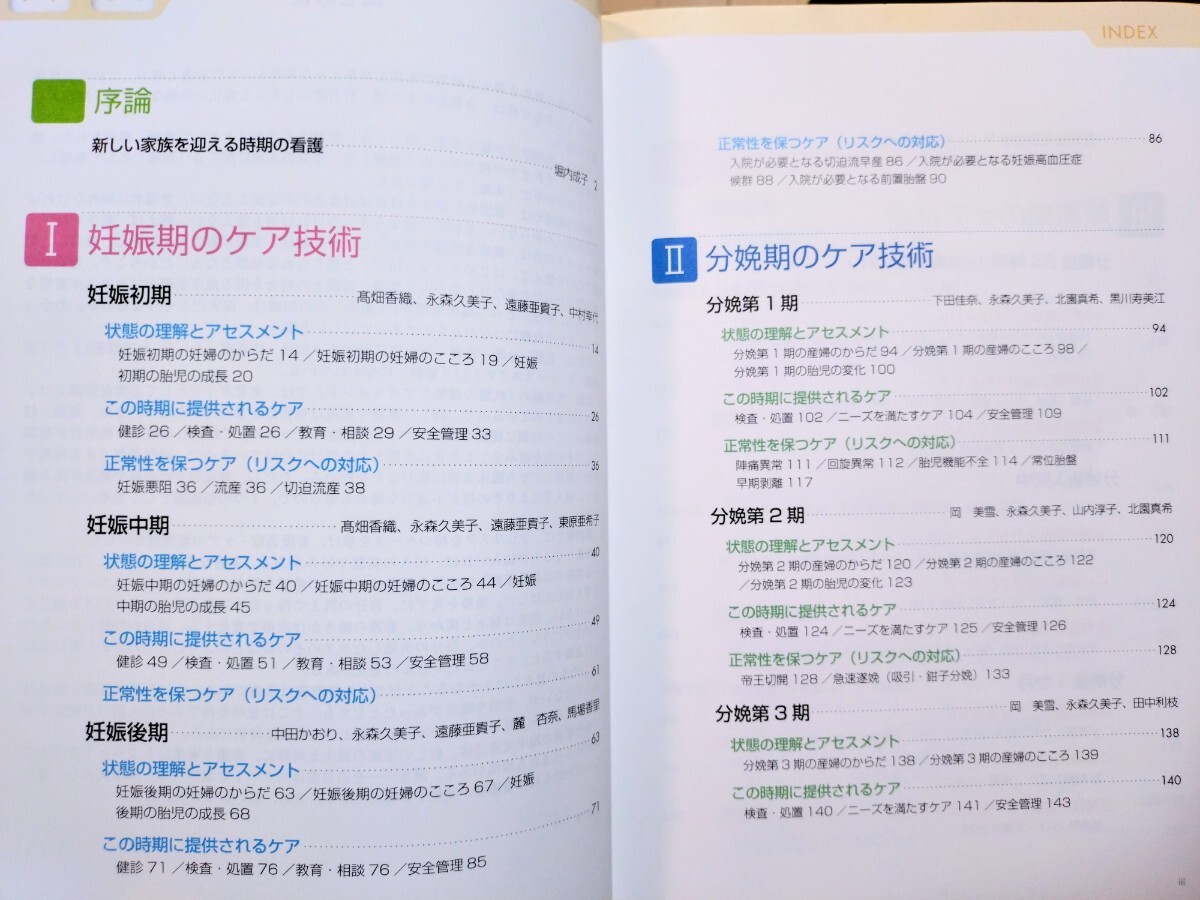 序論
新しい家族を迎える時期の看護 堀内成子 2
I 妊娠期のケア技術
妊娠初期 髙畑香織、永森久美子、遠藤亜貴子、中村幸代
状態の理解とアセスメント 14
妊娠初期の妊婦のからだ 14 ／妊娠初期の妊婦のこころ 19 ／妊娠
初期の胎児の成長 20
この時期に提供されるケア 26
健診 26 ／検査・処置 26 ／教育・相談 29 ／安全管理 33
正常性を保つケア（リスクへの対応） 36
妊娠悪阻 36 ／流産 36 ／切迫流産 38
妊娠中期 髙畑香織、永森久美子、遠藤亜貴子、東原亜希子
状態の理解とアセスメント 40
妊娠中期の妊婦のからだ 40 ／妊娠中期の妊婦のこころ 44 ／妊娠
中期の胎児の成長 45
この時期に提供されるケア 49
健診 49 ／検査・処置 51 ／教育・相談 53 ／安全管理 58
正常性を保つケア（リスクへの対応） 61
妊娠後期 中田かおり、永森久美子、遠藤亜貴子、麓 杏奈、馬場香里
状態の理解とアセスメント 63
妊娠後期の妊婦のからだ 63 ／妊娠後期の妊婦のこころ 67 ／妊娠
後期の胎児の成長 68
この時期に提供されるケア 71
健診 71 ／検査・処置 76 ／教育・相談 76 ／安全管理 85
INDEX
正常性を保つケア（リスクへの対応） 86
入院が必要となる切迫流早産 86 ／入院が必要となる妊娠高血圧症
候群 88 ／入院が必要となる前置胎盤 90
II 分娩期のケア技術
分娩第1期 下田佳奈、永森久美子、北園真希、黒川寿美江
状態の理解とアセスメント 94
分娩第1期の産婦のからだ 94 ／分娩第1期の産婦のこころ 98 ／
分娩第1期の胎児の変化 100
この時期に提供されるケア 102
検査・処置 102 ／ニーズを満たすケア 104 ／安全管理 109
正常性を保つケア（リスクへの対応） 111
陣痛異常 111 ／回旋異常 112 ／胎児機能不全 114 ／常位胎盤
早期剥離 117
分娩第2期 岡 美雪、永森久美子、山内淳子、北園真希
状態の理解とアセスメント 120
分娩第2期の産婦のからだ 120 ／分娩第2期の産婦のこころ 122
／分娩第2期の胎児の変化 123
この時期に提供されるケア 124
検査・処置 124 ／ニーズを満たすケア 125 ／安全管理 126
正常性を保つケア（リスクへの対応） 128
帝王切開 128 ／急速遂娩（吸引・鉗子分娩）133
分娩第3期 岡 美雪、永森久美子、田中利枝
状態の理解とアセスメント 138
分娩第3期の産婦のからだ 138 ／分娩第3期の産婦のこころ 139
この時期に提供されるケア 140
検査・処置 140 ／ニーズを満たすケア 141 ／安全管理 143
iii